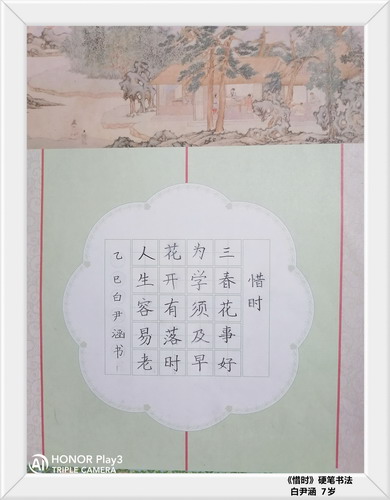 惜时
三春花事好
为学须及早
花开有落时
人生容易老
乙巳白尹涵书
AI
HONOR Play3
TRIPLE CAMERA
《惜时》硬笔书法
白尹涵 7岁